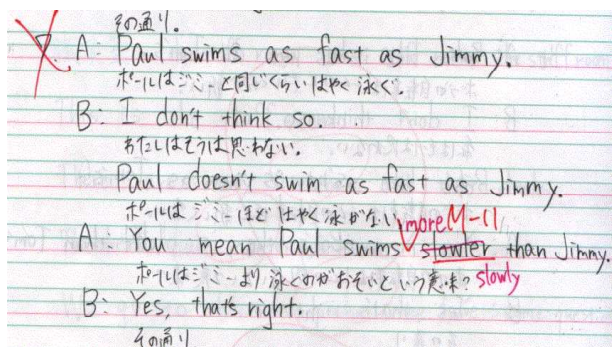 その通り.
9. A: Paul swims as fast as Jimmy.
ポールはジミーと同じくらいはやく泳ぐ.
B: I don't think so.
わたしはそうは思わない.
Paul doesn't swim as fast as Jimmy.
ポールはジミーほどはやく泳がない
more M-11
A: You mean Paul swims slowler than Jimmy.
ポールはジミーより泳ぐのがおそいという意味? slowly
B: Yes, that's right.
その通り